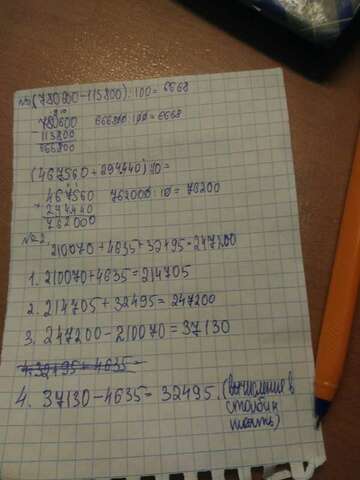 №1 (780600-113800):100=6668
780600
- 113800
666800
666800:100=6668
(467560+294440):10=
467560
+ 294440
762000
762000:10=76200
№2.
210070+4635+32495=247200
1. 210070+4635=214705
2. 214705+32495=247200
3. 247200-210070=37130
4. 32495+4635=
4. 37130-4635=32495. (вычисления в
столбик
)